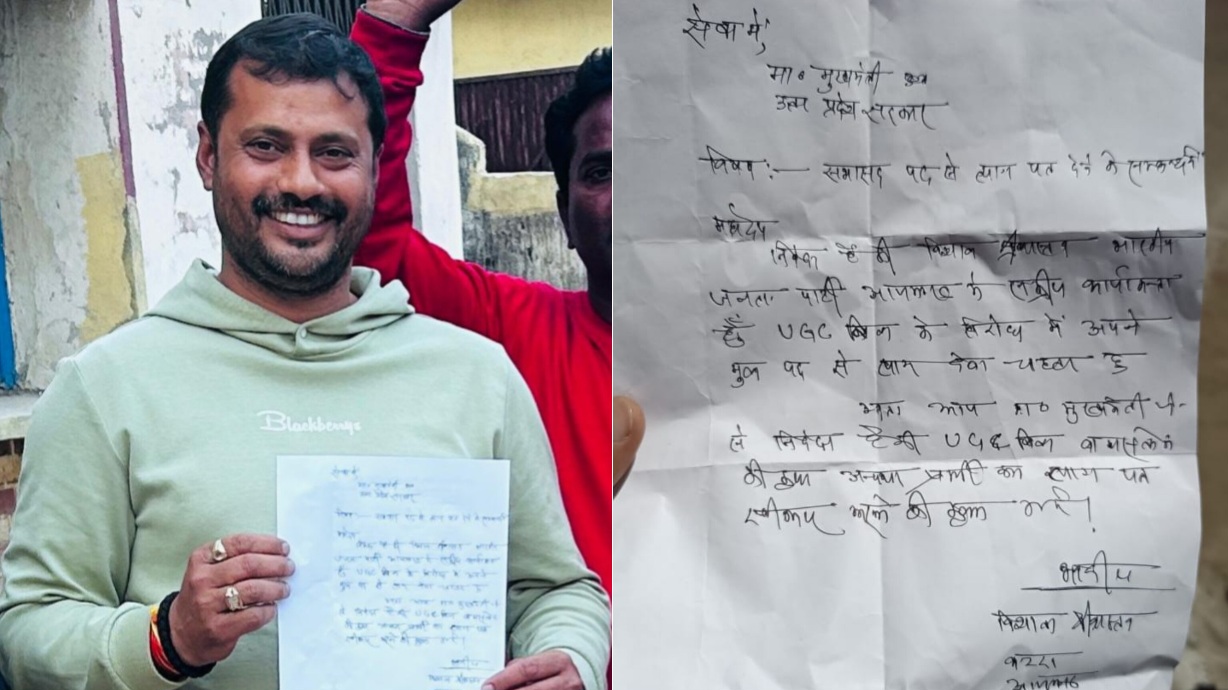 Blackberrys
सेवा में,
मा० मुख्यमंत्री
उत्तर प्रदेश सरकार
विषय:— सभासद पद से त्याग पत्र देने के सम्बन्ध में
महोदय
निवेदन है की विशाल श्रीवास्तव भारतीय
जनता पार्टी के सक्रीय कार्यकर्ता
हूँ UGC बिल के विरोध में अपने
मूल पद से त्याग देना चाहता हूँ
अतः आप मा० मुख्यमंत्री जी
से निवेदन है की UGC बिल वापस लेने
की कृपा अन्यथा प्रार्थी का त्याग पत्र
स्वीकार करने की कृपा करें।
प्रार्थी
विशाल श्रीवास्तव